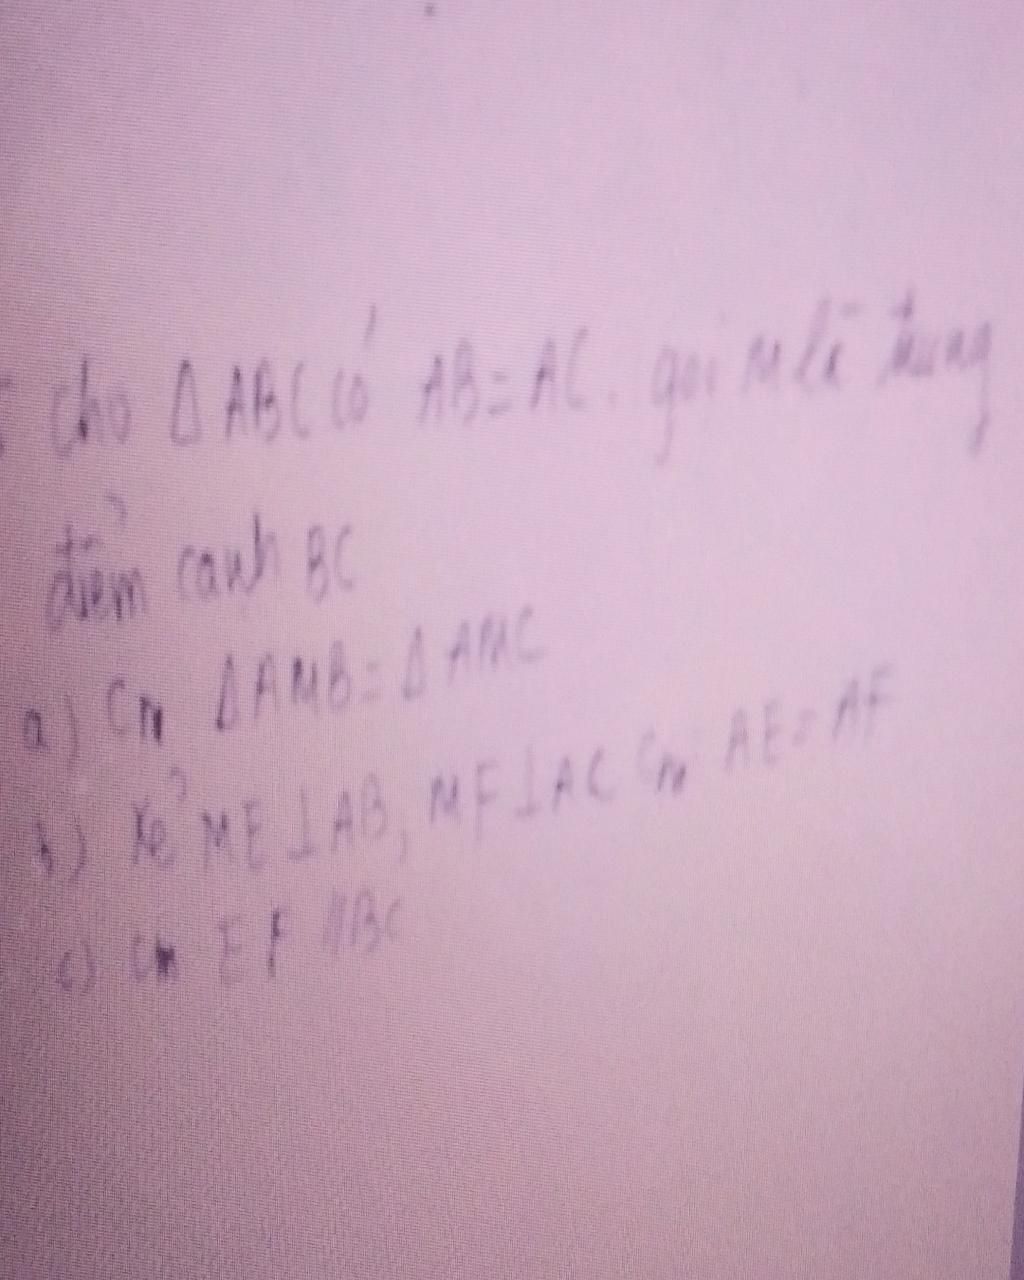 : Cho Δ ABC có AB = AC. gọi M là trung
điểm cạnh BC
a) Cm Δ AMB = Δ AMC
b) Kẻ ME ⊥ AB, MF ⊥ AC Cm AE = AF
c) Cm EF // BC